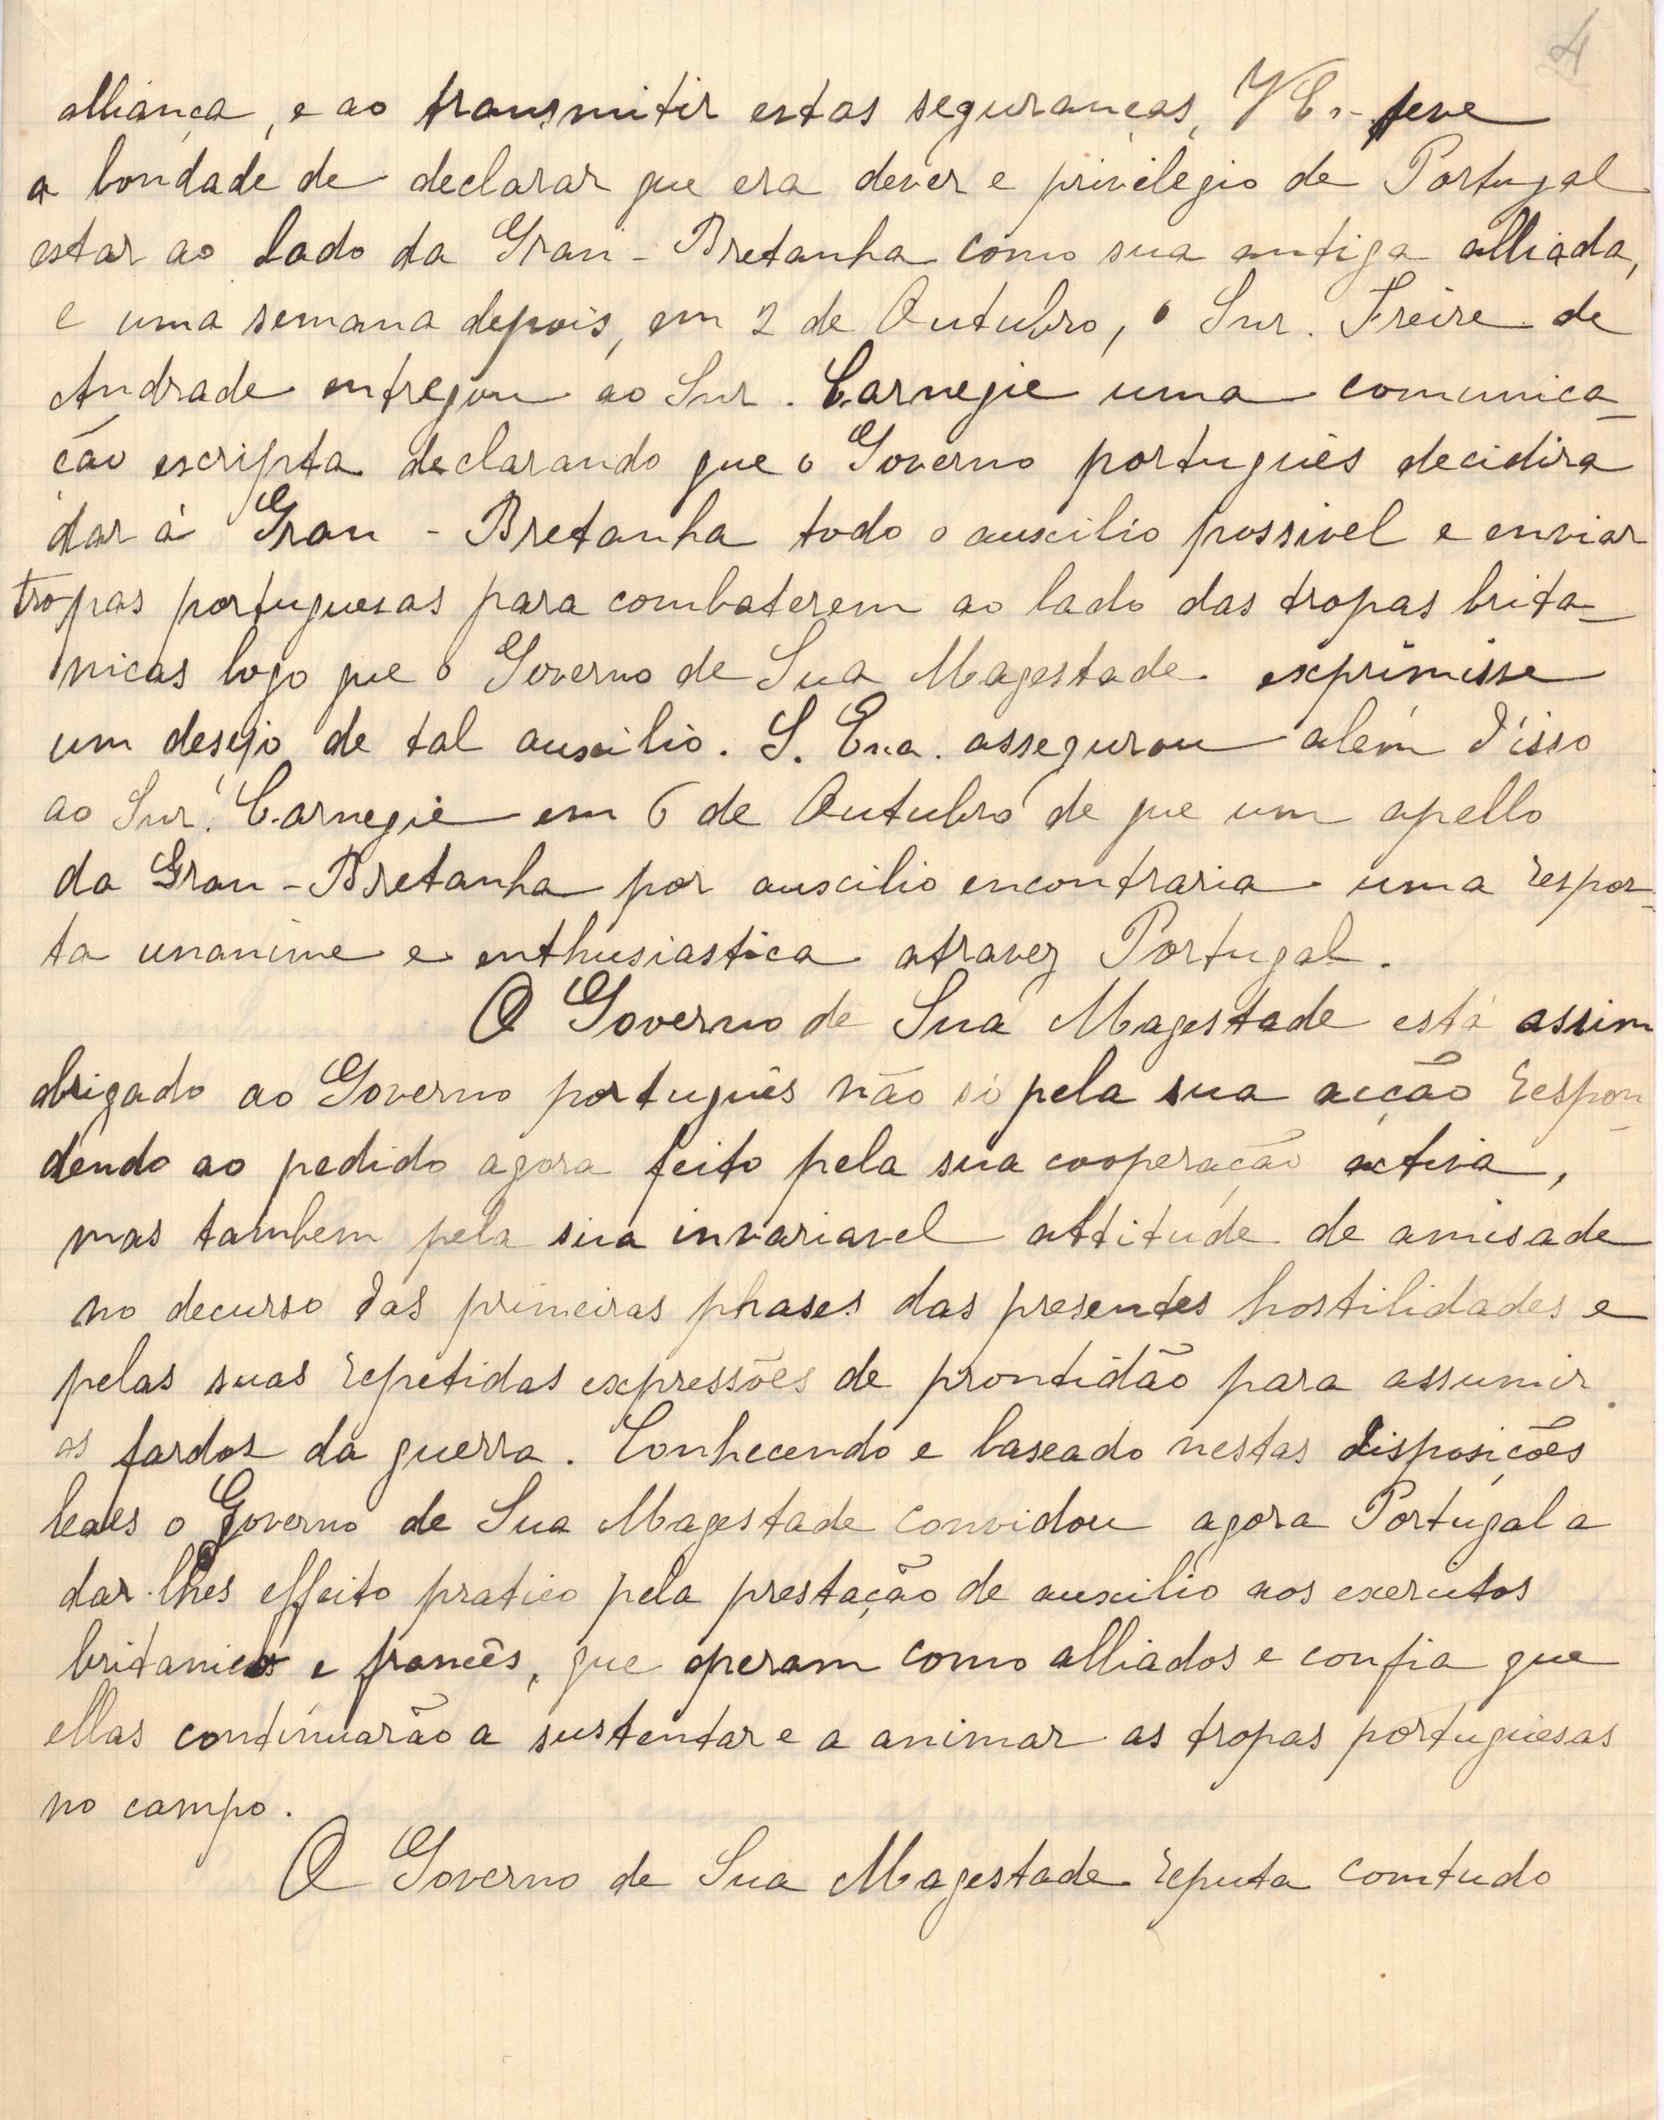 4
alliança, e ao transmitir estas seguranças, V Ex.ª teve
a bondade de declarar que era dever e privilegio de Portugal
estar ao lado da Gran-Bretanha como sua antiga alliada,
e uma semana depois, em 2 de Outubro, o Snr. Freire de
Andrade entregou ao Snr. Carnegie uma comunica-
ção escripta declarando que o Governo português decidira
dar á Gran-Bretanha todo o auxilio possivel e enviar
tropas portuguesas para combaterem ao lado das tropas brita-
nicas logo que o Governo de Sua Magestade exprimisse
um desejo de tal auxilio. S. Exa. assegurou além d'isso
ao Snr. Carnegie em 6 de Outubro de que um apello
da Gran-Bretanha por auxilio encontraria uma respos-
ta unanime e enthusiastica atravez Portugal.
O Governo de Sua Magestade está assim
obrigado ao Governo português não só pela sua acção respon-
dendo ao pedido agora feito pela sua cooperação activa,
mas tambem pela sua invariavel attitude de amisade
no decurso das primeiras phases das presentes hostilidades e
pelas suas repetidas expressões de prontidão para assumir
os fardos da guerra. Conhecendo e baseado nestas disposições
leaes o Governo de Sua Magestade convidou agora Portugal a
dar-lhes effeito pratico pela prestação de auxilio aos exercitos
britanicos e francês, que operam como alliados e confia que
ellas continuarão a sustentar e a animar as tropas portuguesas
no campo.
O Governo de Sua Magestade reputa comtudo